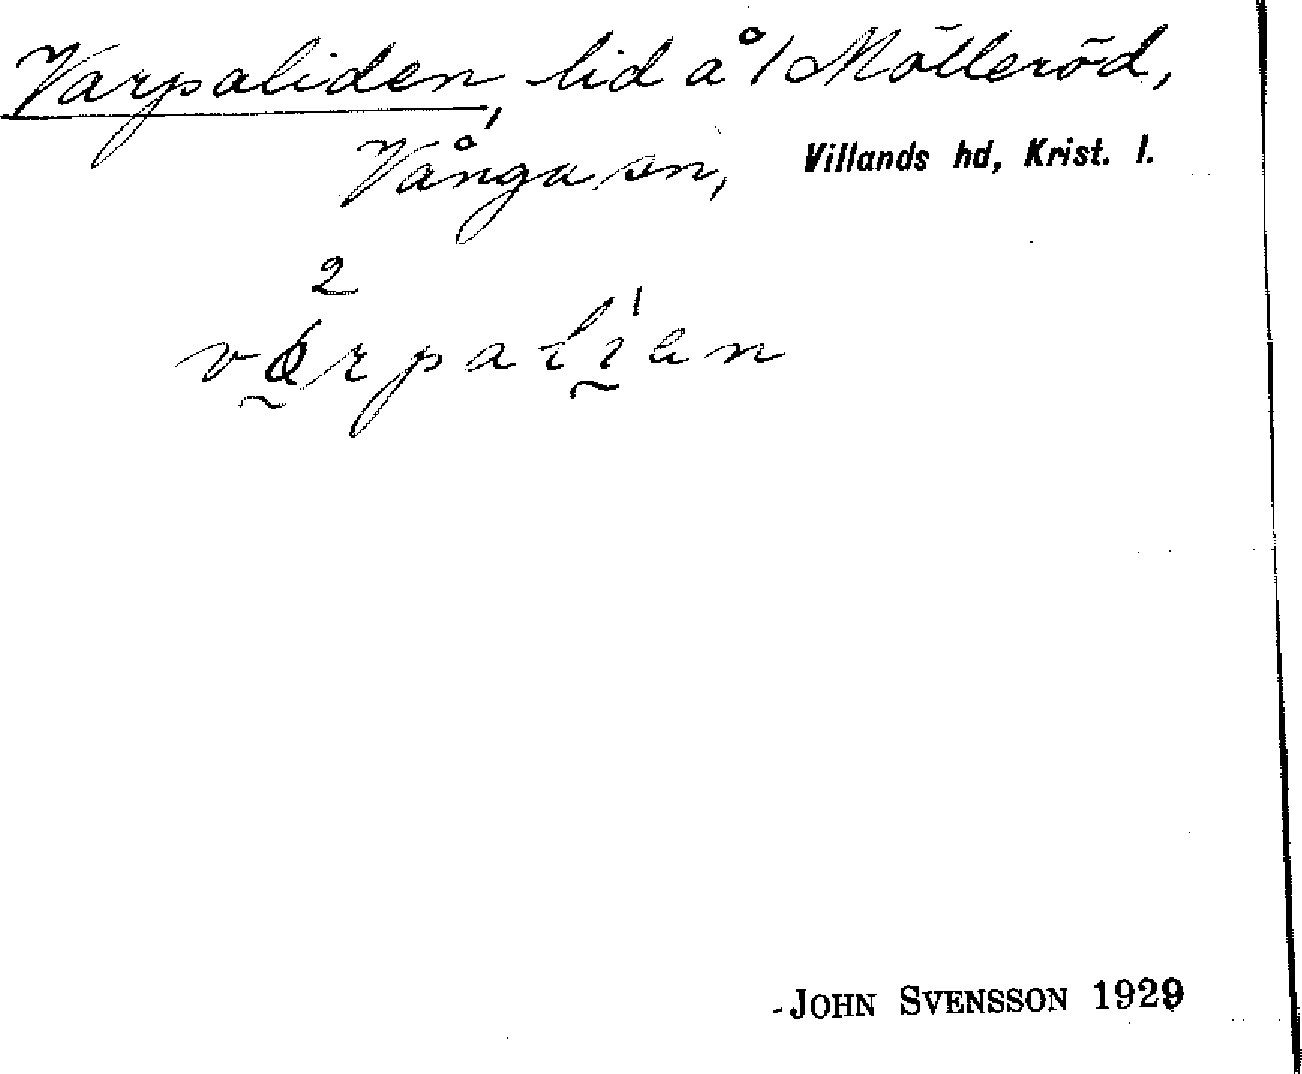 Varpaliden, lid å/Mölleröd,
Vånga sn, Villands hd, Krist. l.
2
vɑrpalien
JOHN SVENSSON 1929